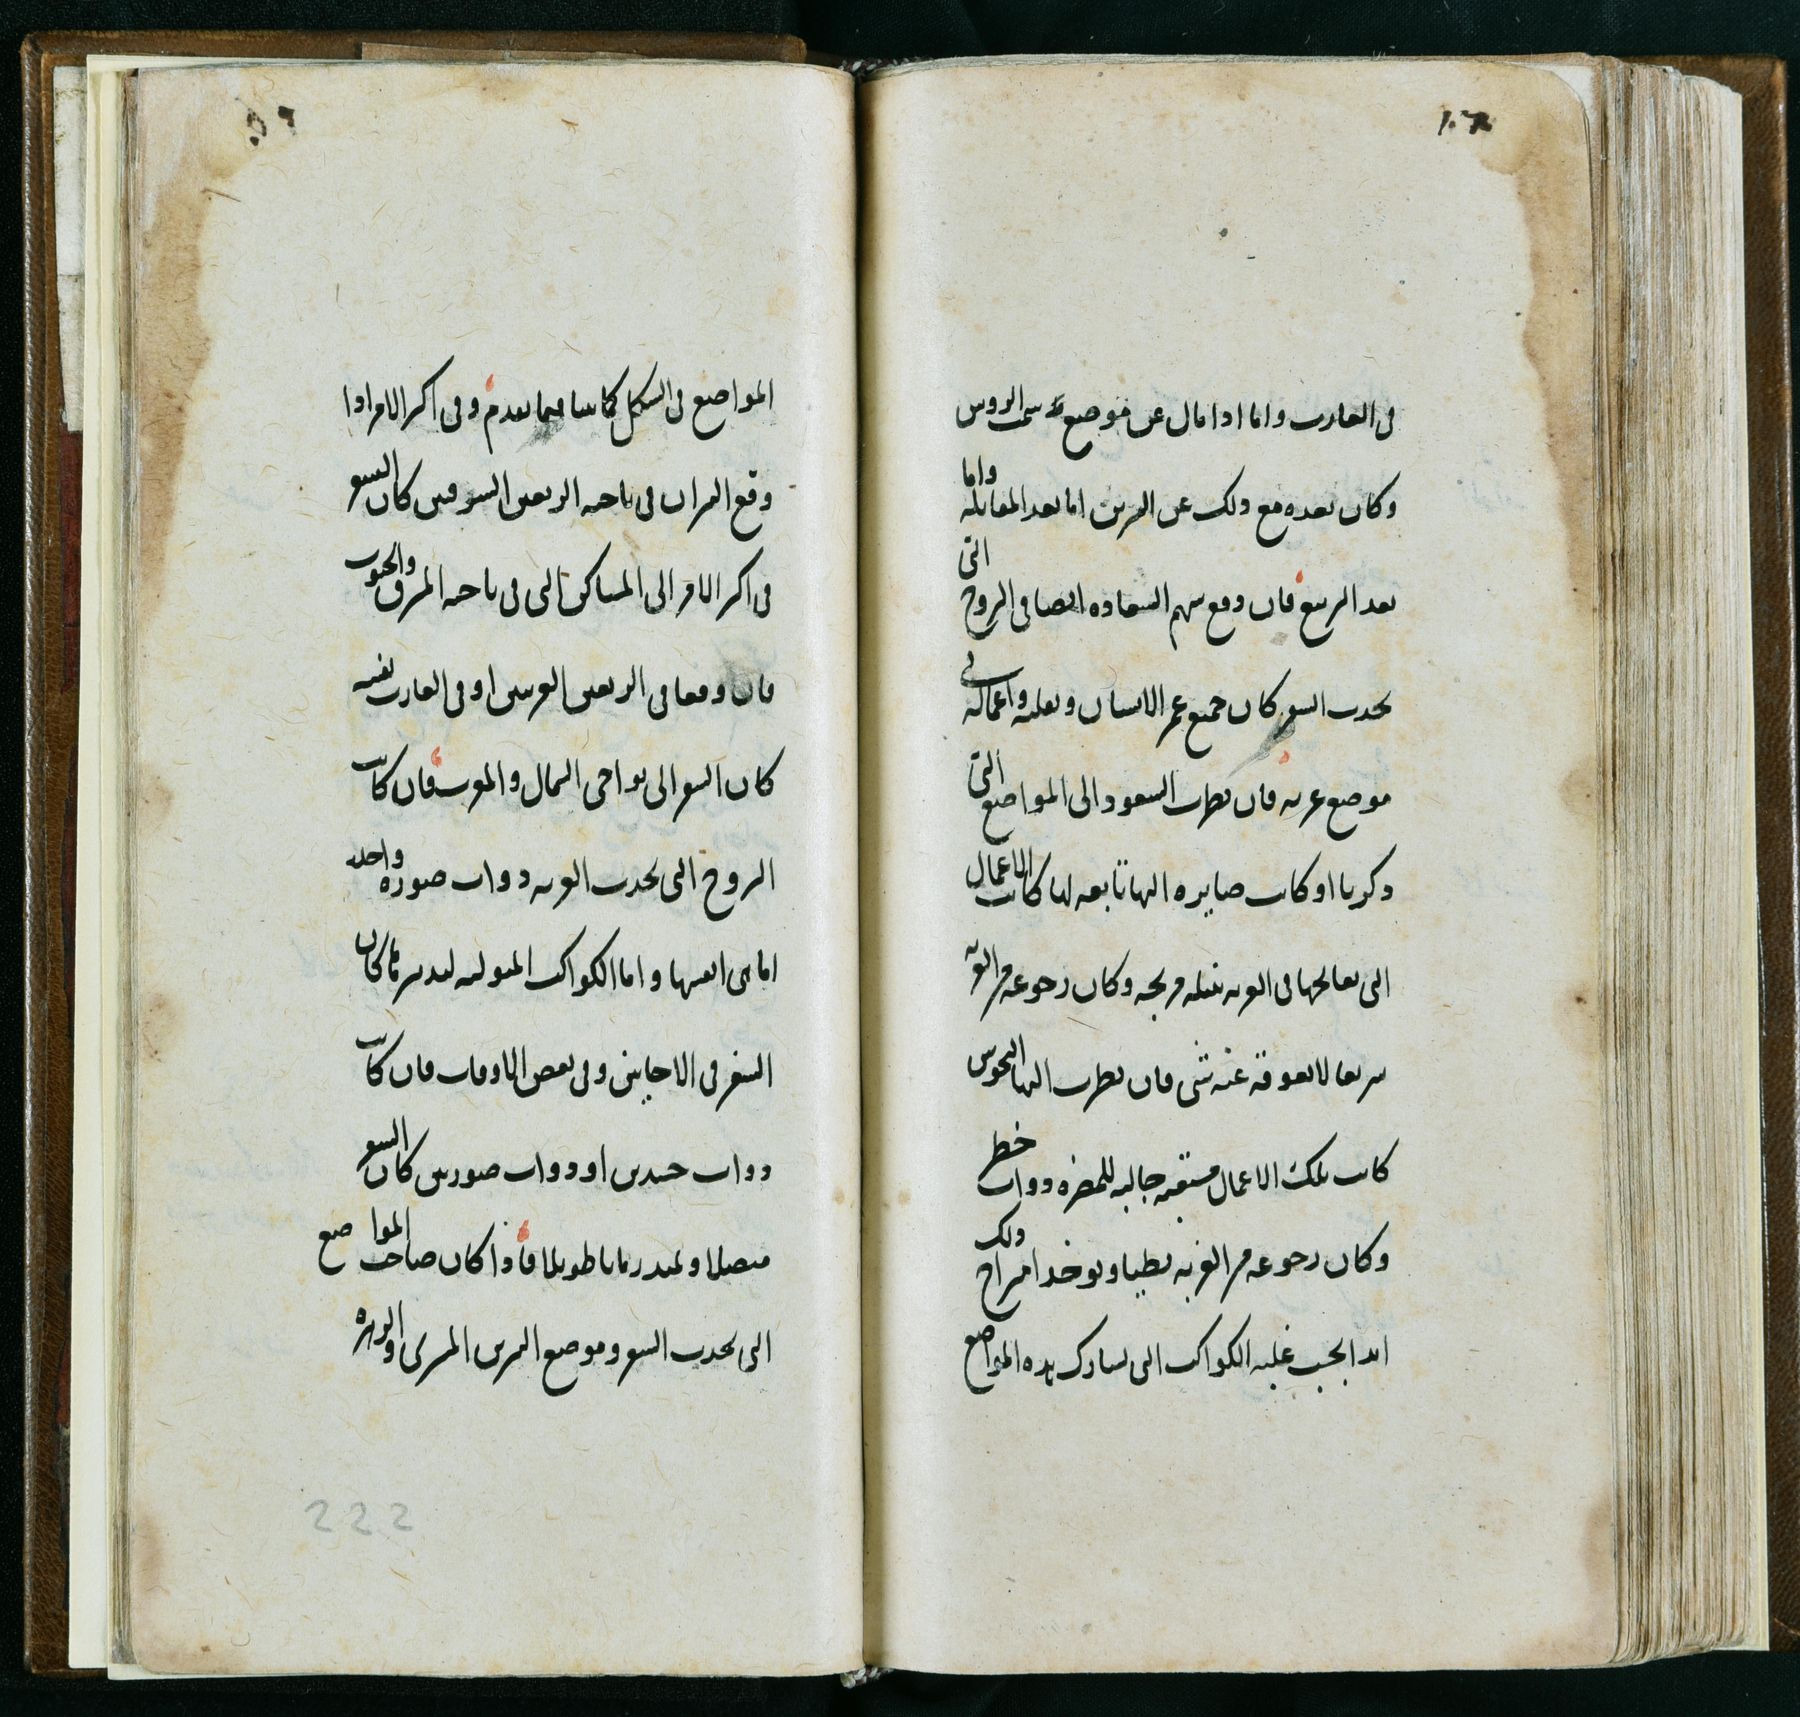 فى الغارب واما اذا مال عن موضع سمت الروس
وكان بعده مع ذلك عن النيرين اما بعد المقابلة واما
بعد التربيع فان وقع سهم السعادة ايضا فى البروج التى
تحدث السفر كان جميع عمر الانسان وتقلبه واعماله فى
موضع غربة فان نظرت السعود الى المواضع التى
ذكرنا او كانت صايرة اليها تابعة لها كانت الاعمال
التى يعالجها فى الغربة منجحة وكان رجوعه من الغربة
سريعا لا يعوقه عنه شى فان نظرت اليها النحوس
كانت تلك الاعمال جالبة للمضرة ذوات خطر
وكان رجوعه من الغربة بطيا ويوخذ امزاج ذلك
ابدا بحسب غلبة الكواكب التى تشارك هذه المواضع
المواضع فى الشكل كما بينا فيما تقدم وفى اكثر الامر اذا
وقع النيران فى ناحية الربعين الشرقيين كان السفر
فى اكثر الامر الى المساكن التى فى ناحية المشرق والجنوب
فان وقعا فى الربعين الغربيين او فى الغارب نفسه
كان السفر الى نواحى الشمال والمغرب فان كانت
البروج التى تحدث الغربة ذوات صورة واحدة
اما هى انفسها واما الكواكب المتولية لتدبيرها كان
السفر فى الاحايين وفى بعض الاوقات فان كانت
ذوات جسدين او ذوات صورتين كان السفر
متصلا ولمدد زمانا طويلا فاذا كان صاحب المواضع
التى تحدث السفر وموضع النيرين المشترى والزهرة
222